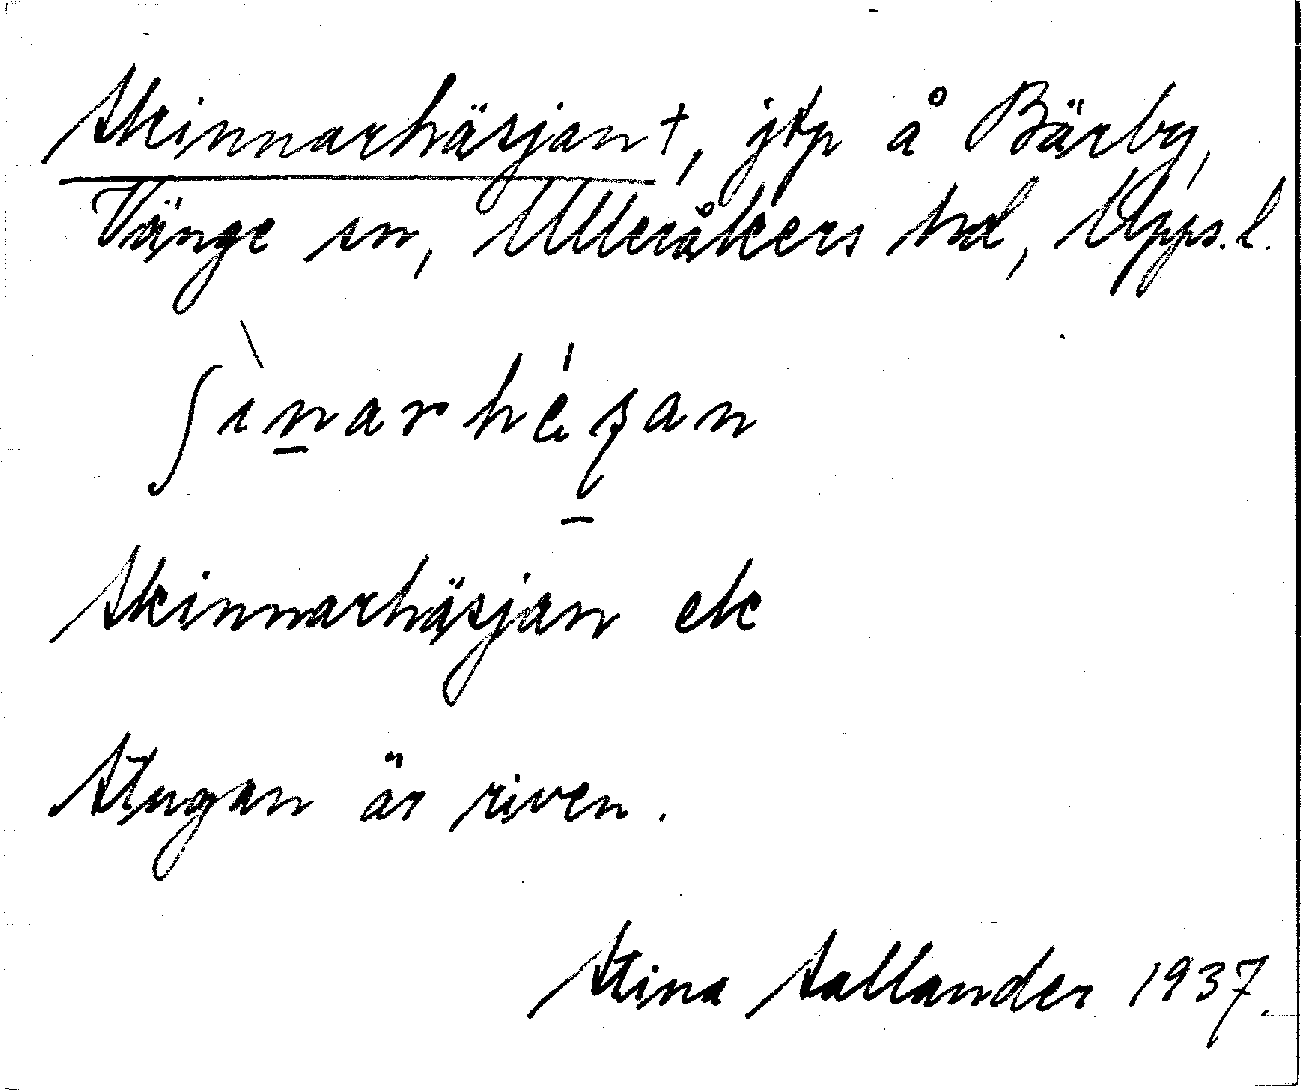 Skinnarhäsjan†, jtp å Bärby,
Vänge sn, Ulleråkers hd, Upps. l.
ʃìn̲arhé̱ʂan
Skinnarhäsjan ek
Stugan är riven.
Stina Sallander 1937.